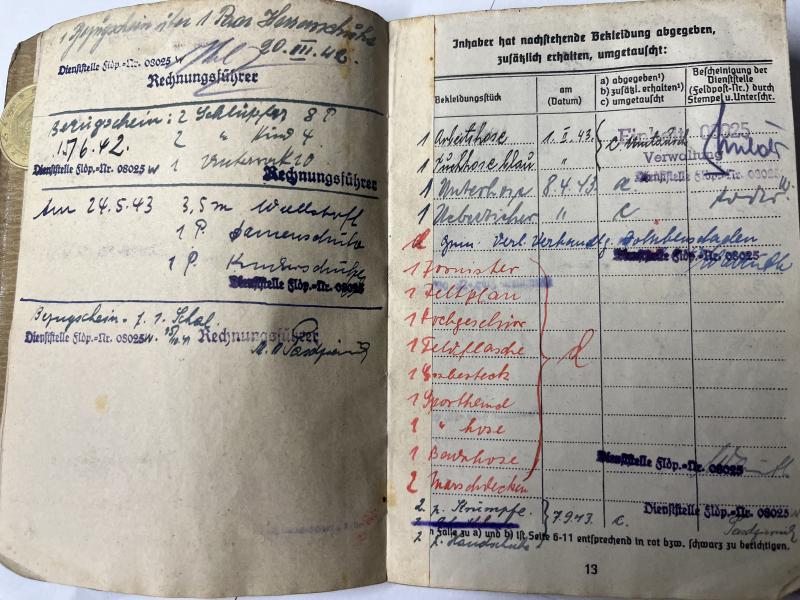 1 Bezugschein über 1 Paar Herrenschuhe
20. III. 42.
Dienststelle Fldp.-Nr. 08025
Rechnungsführer
Bezugschein: 2 Schlüpfer 8 P
2 " Kind 4
15/6.42.
Dienststelle Fldp.-Nr. 08025 W 1 10
Rechnungsführer
Am 24.5.43 3,5 m Wollstoff
1 P. Damenschuhe
1 P. Kinderschuhe
Dienststelle Fldp.-Nr. 08025
Bezugschein f. 1 Schal
Dienststelle Fldp.-Nr. 08025 W. Rechnungsführer
Inhaber hat nachstehende Bekleidung abgegeben,
zusätzlich erhalten, umgetauscht:
Bekleidungsstück
am (Datum)
a) abgegeben¹)
b) zusätzl. erhalten¹)
c) umgetauscht
Bescheinigung der
Dienststelle
(Feldpost-Nr.) durch
Stempel u. Unterschr.
1 Arbeitshose 1.5.43. c Umtausch
Einheit 08025
1 Tuchhose blau "
Verwaltung
1 Unterhose 8.4.43. a.
Dienststelle Fldp.-Nr. 08025 W
1 Ueberzieher " c
d Gem. Verl. Verhandlg. Bombenschaden
Dienststelle Fldp.-Nr. 08025
1 Tornister
1 Zeltplan
1 Kochgeschirr
1 Feldflasche d
1 Essbesteck
1 Sporthemd
1 " hose
1 Badehose
Dienststelle Fldp.-Nr. 08025
2 Marschdecken
2 p. Strümpfe. 7.9.43. c.
Dienststelle Fldp.-Nr. 08025 W
In Falle zu a) und b) ist Seite 6-11 entsprechend in rot bzw. schwarz zu berichtigen.
2 p. Handschuhe
13